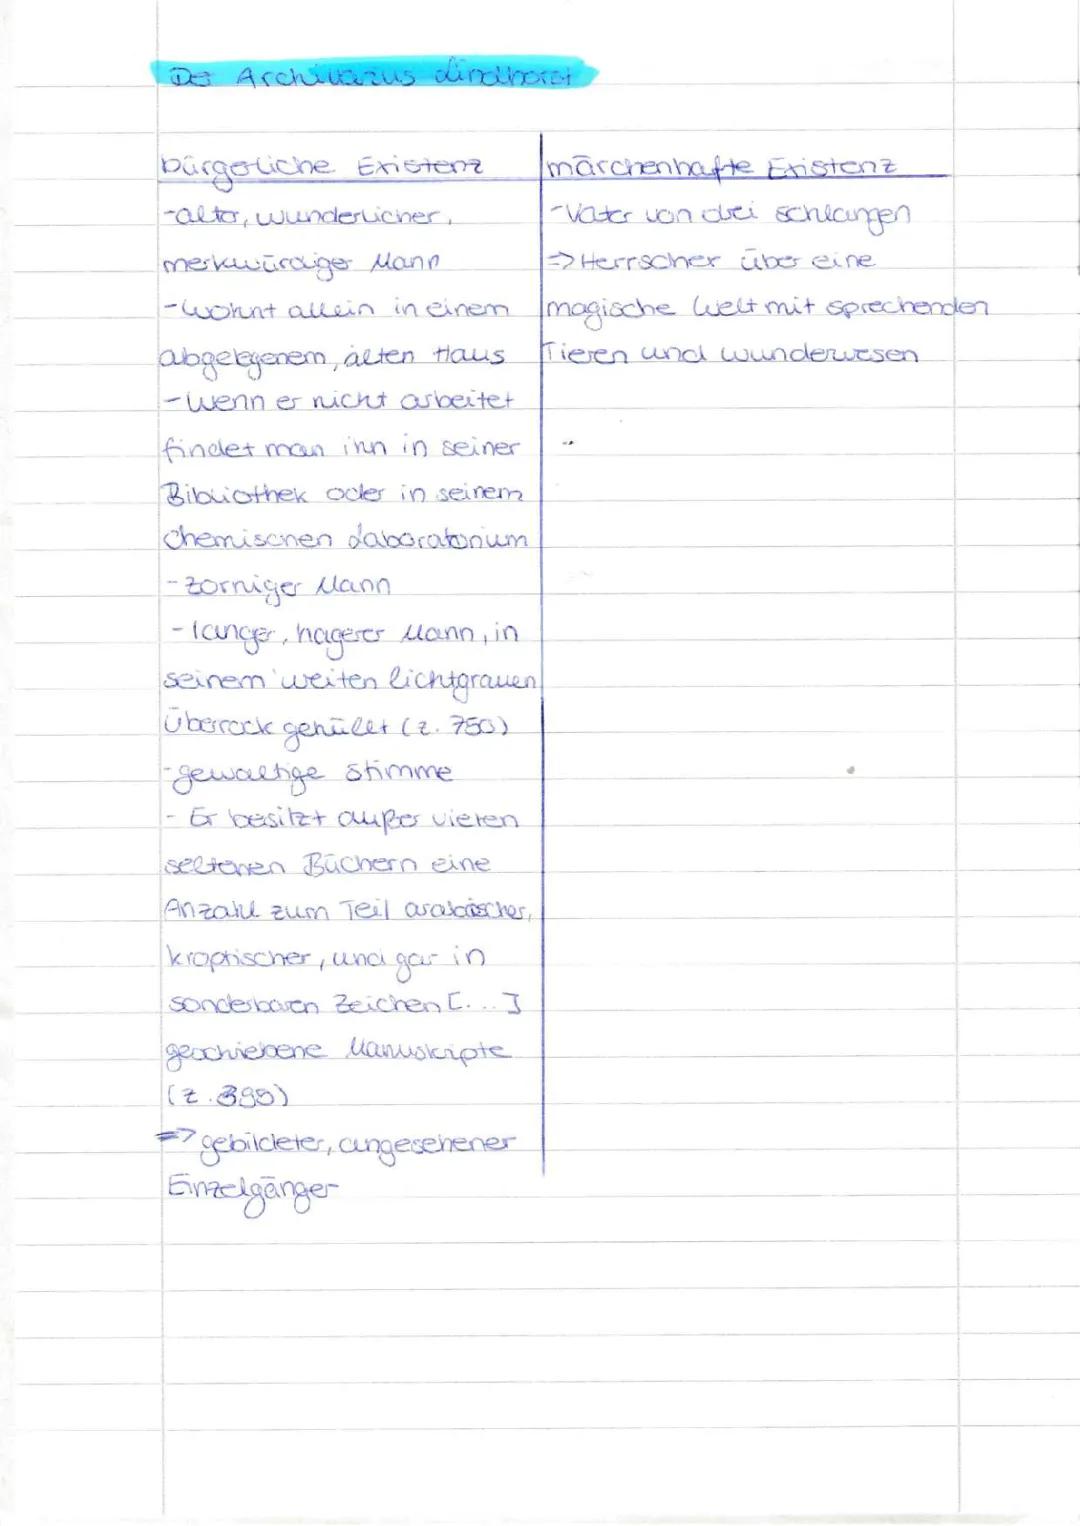 Der Archivarius Lindhorst
bürgerliche Existenz
-alter, wunderlicher,
merkwürdiger Mann
-wohnt allein in einem
abgelegenem, alten Haus
-wenn er nicht arbeitet
findet man inn in seiner
Bibliothek oder in seinem
chemischen Laboratorium
-zorniger Mann
-langer, hagerer Mann, in
seinem weiten lichtgrauen
Überrock gehüllt (z. 750)
-gewaltige Stimme
- Er besitzt außer vielen
seltenen Büchern eine
Anzahl zum Teil arabischer,
kroptischer, und gar in
sonderbaren Zeichen [...]
geschriebene Manuskripte
(z. 398)
=> gebildeter, angesehener
Einzelgänger
märchenhafte Existenz
-Vater von drei Schlangen
=> Herrscher über eine
magische Welt mit sprechenden
Tieren und wunderwesen